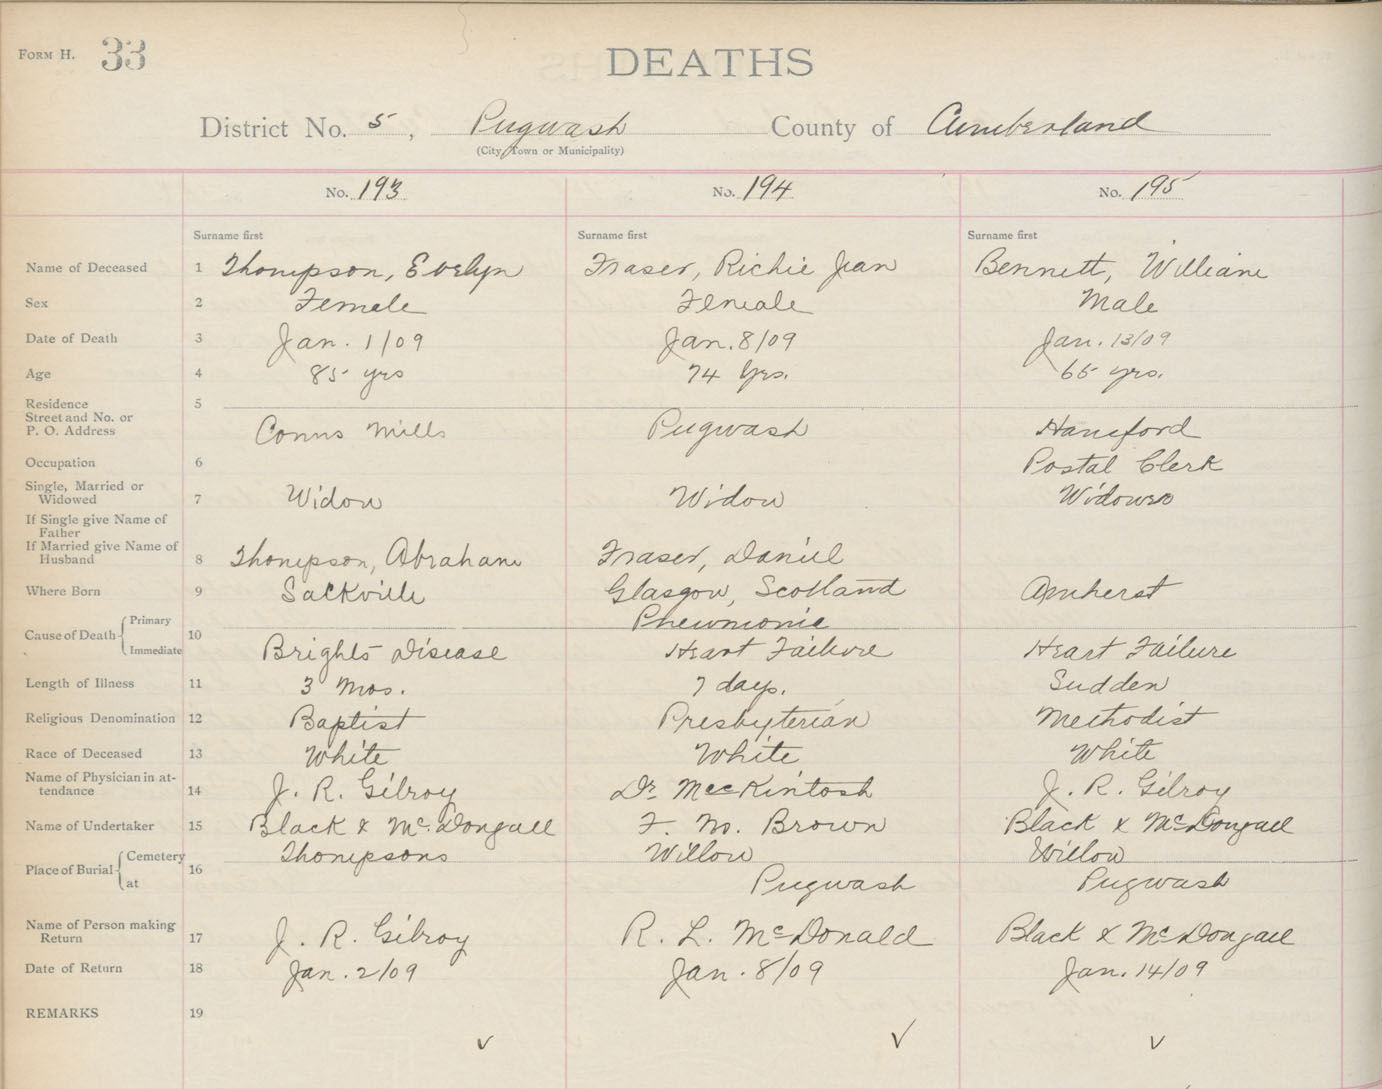 FORM H. 33
DEATHS
District No. 5, Pugwash County of Cumberland
(City, Town or Municipality)
No. 193 No. 194 No. 195
Surname first Surname first Surname first
Name of Deceased 1 Thompson, Evelyn Fraser, Richie Jean Bennett, William
Sex 2 Female Female Male
Date of Death 3 Jan. 1/09 Jan. 8/09 Jan. 13/09
Age 4 85 yrs 74 Yrs. 65 yrs.
Residence 5
Street and No. or
P. O. Address Conns Mills Pugwash Hansford
Occupation 6 Postal Clerk
Single, Married or
Widowed 7 Widow Widow Widower
If Single give Name of
Father
If Married give Name of
Husband 8 Thompson, Abraham Fraser, Daniel
Where Born 9 Sackville Glasgow, Scotland Amherst
Cause of Death Primary 10 Pneumonia
Immediate Brights disease Heart Failure Heart Failure
Length of Illness 11 3 Mos. 7 days. Sudden
Religious Denomination 12 Baptist Presbyterian Methodist
Race of Deceased 13 White White White
Name of Physician in at-
tendance 14 J. R. Gilroy Dr. MacKintosh J. R. Gilroy
Name of Undertaker 15 Black & McDougall F. W. Brown Black & McDougall
Place of Burial Cemetery 16 Thompsons Willow Willow
at Pugwash Pugwash
Name of Person making
Return 17 J. R. Gilroy R. L. McDonald Black & McDougall
Date of Return 18 Jan. 2/09 Jan. 8/09 Jan. 14/09
REMARKS 19